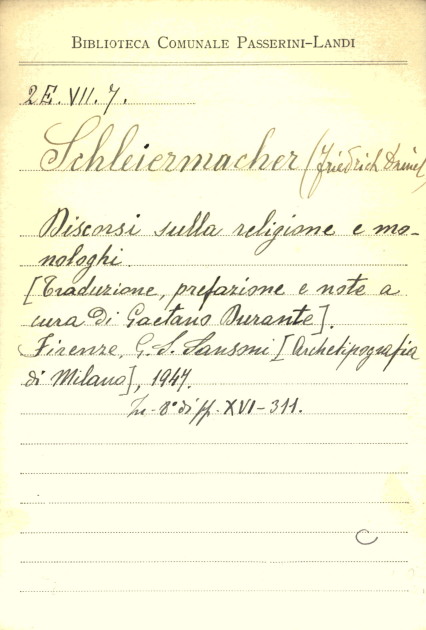 BIBLIOTECA COMUNALE PASSERINI-LANDI
2E. VII. 7.
Schleiermacher (Friedrich Daniel)
Discorsi sulla religione e mo-
nologhi.
[Traduzione, prefazione e note a
cura di Gaetano Durante].
Firenze, G. S. Sansoni [Archetipografia
di Milano], 1947.
In-8° di pp. XVI-311.
C